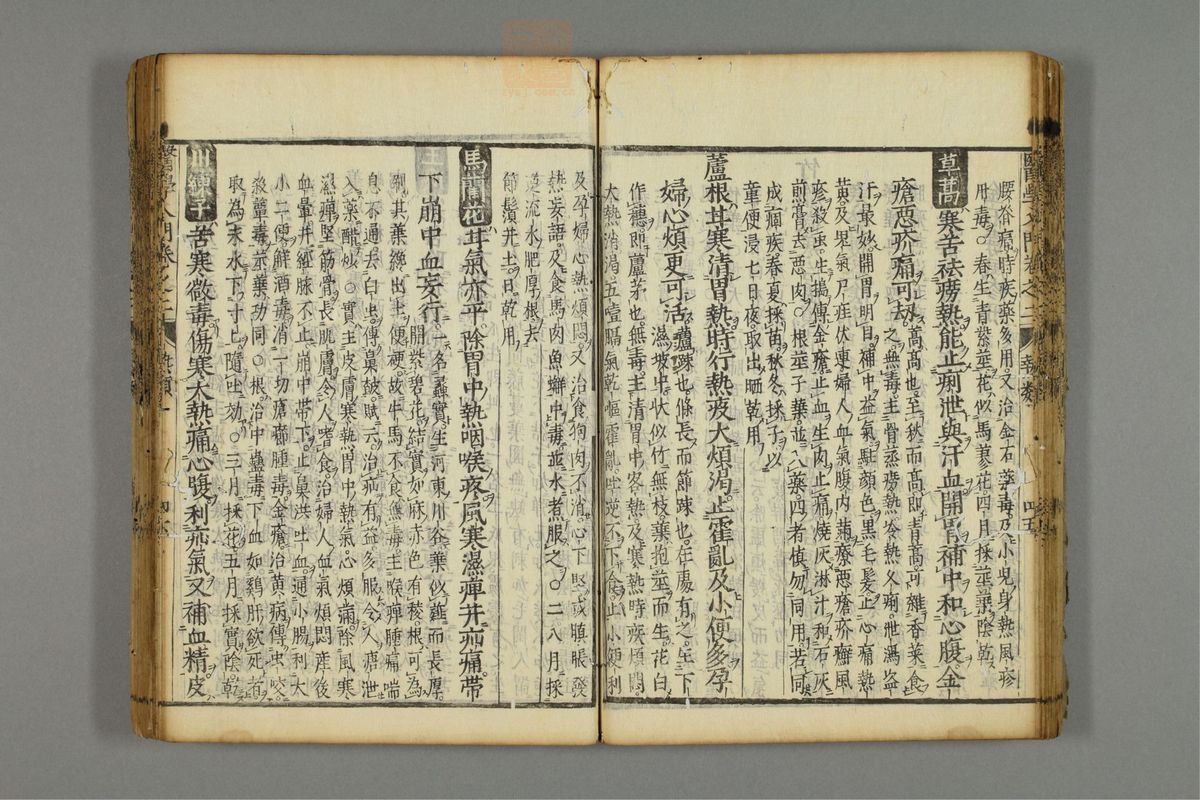 腰谷瘡時疾藥多用又治金石藥毒及小兒身熱風疹
肝毒春生青紫莖花似馬蓼花四月採莖葉陰乾
草蒿寒苦祛癆熱能止痢泄與汗血開胃補中和心腹金
瘡惡疥痛可劫
蒿高也至秋而高即青蒿可雜香菜食
之無毒主骨蒸癆熱冷熱久痢泄瀉盜
汗最妙開胃明目補中益氣駐顏色黑毛髮止心痛熱
黃及鬼氣尸疰伏連婦人血氣腹內滿療惡瘡疥癬風
疹殺虫生搗傅金瘡止血生肉止痛燒灰淋汁和石灰
煎膏去惡肉○根莖子葉並入藥四者慎勿同用若同
成痼疾春夏採苗秋冬採子以
童便浸七日夜取出晒乾用
蘆根甘寒清胃熱時行熱疫大煩渴止霍亂及小便多孕
婦心煩更可活
蘆踈也條長而節踈也在處有之生下
濕坡中狀似竹無枝葉抱莖而生花白
作穗即蘆茅也無毒主清胃中客熱及寒熱時疾煩悶
大熱消渴五噎膈氣乾嘔霍亂吐逆不下食止小便利
及孕婦心熱煩悶又治食狗肉不消心下堅或䐜脹發
熱妄語及食馬肉魚蠏中毒並水煮服之○二八月採
逆流水肥厚根去
節鬚并土日乾用
馬藺花甘氣亦平除胃中熱咽喉疼風寒濕痺并疝痛帶
下崩中血妄行
一名蠡實生河東川谷葉似薤而長厚
開紫碧花結實如麻赤色有稜根可為
刷其葉纔出土便硬故牛馬不食無毒主喉痺腫痛喘
息不通去白虫傅鼻皶賦云治疝有益多服令人瘡泄
入藥醋炒○實主皮膚寒熱胃中熱氣心煩滿除風寒
濕痺堅筋骨長肌膚令人嗜食治婦人血氣煩悶產後
血暈并經脉不止崩中帶下止鼻洪吐血通小腸利大
小二便解酒毒消一切瘡癤腫毒金瘡治黃病傅虫咬
殺蕈毒莖葉功同○根治中蠱毒下血如鷄肝飲死者
取為末水下寸上隨吐劫○三月採花五月採實陰乾
川練子苦寒微毒傷寒大熱痛心腹利疝氣又補血精皮